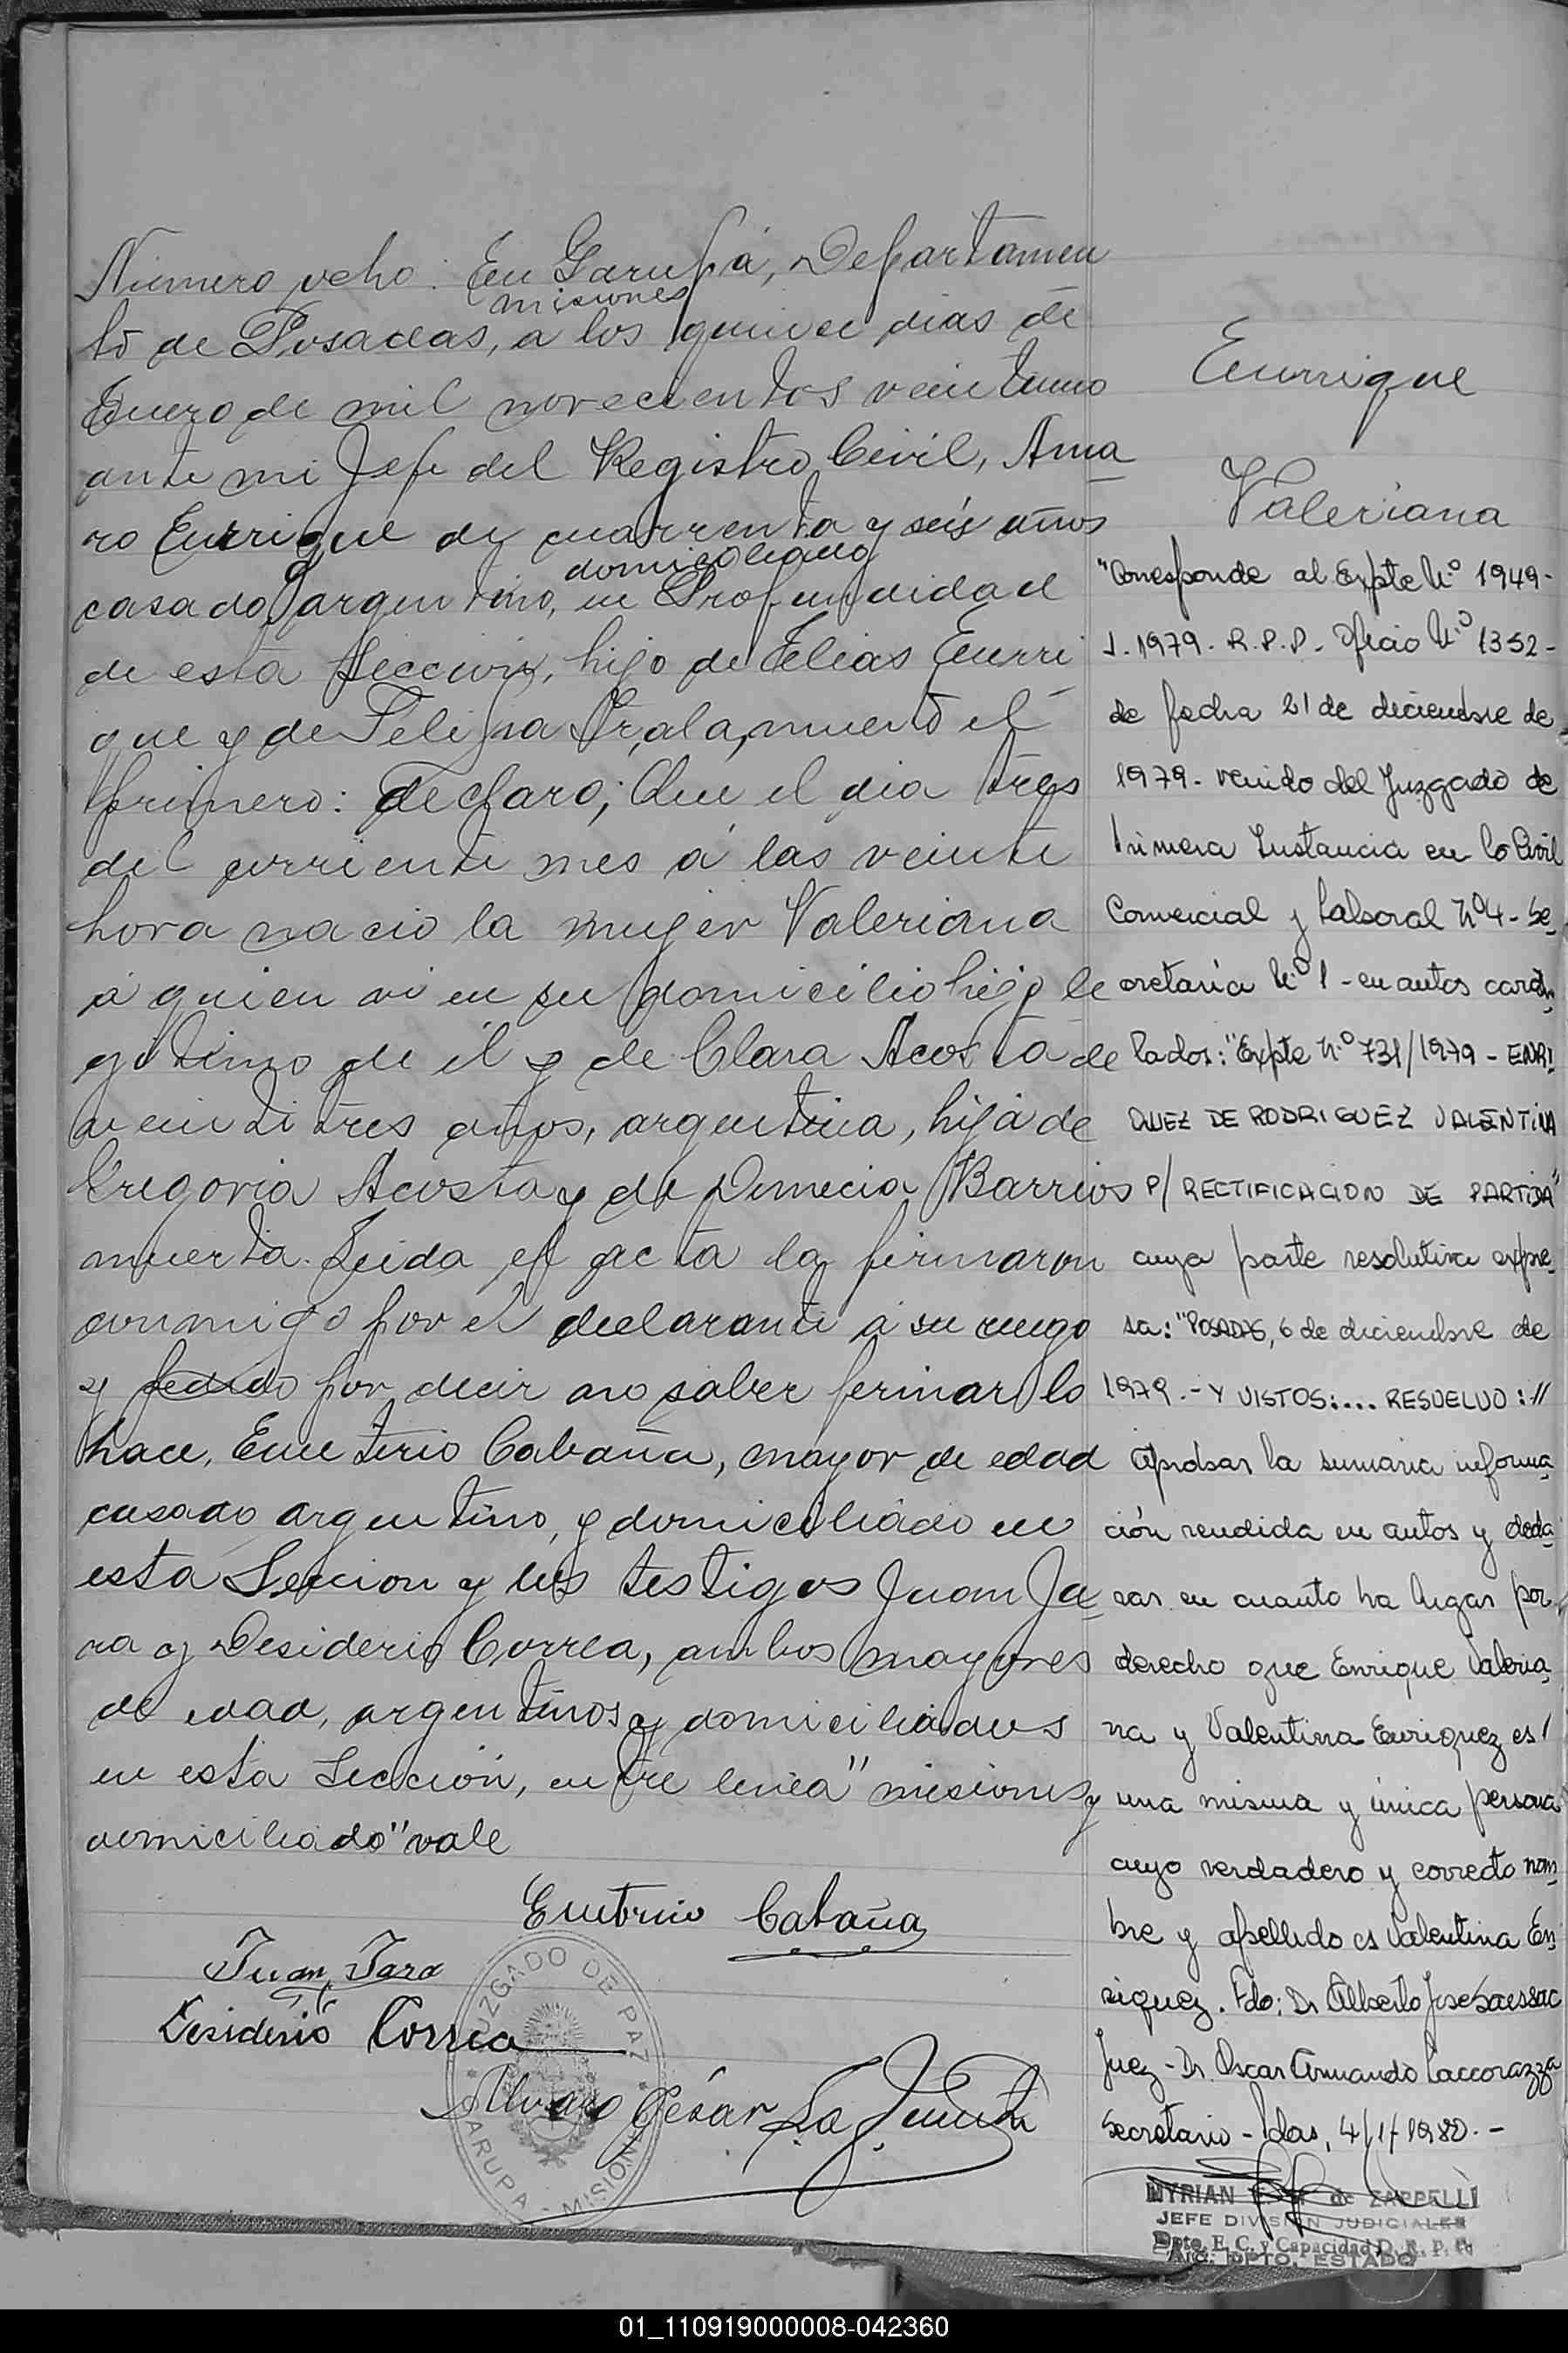 Número ocho: En Garupá, Departamen
misiones
to de Posadas, a los quince dias de
Enero de mil novecientos veintiuno
ante mi Jefe del Registro Civil, Ama
ro Enrrique de cuarrenta y seis años
domiciliado
casado, argentino, en Profundidad
de esta Sección, hijo de Elias Enrri
que y de Felipa muerto el
primero: declaro; Que el dia tres
del corriente mes á las veinte
hora nacio la mujer Valeriana
á quien vi en su domicilio hijo le
gitimo de él y de Clara Acosta de
veintitres años, argentina, hija de
Gregoria Acosta y de Barrios
muerta. Leida el acta la firmaron
conmigo por el declarante á su ruego
y pedido por decir no saber firmar lo
hace, Emeterio Cabaña, mayor de edad
casado argentino, y domiciliado en
esta Seccion y los testigos Juan Ja
ra y Desiderio Correa, ambos mayores
de edad, argentinos y domiciliados
en esta Sección, entre linea "misiones y
domiciliado" vale
Emeterio Cabaña
Juan Jara
Desiderio Correa
Alvaro César La
JUZGADO DE PAZ
GARUPA - MISIONES
Enrrique
Valeriana
"Corresponde al Expte Nº 1949-
1979 - R.P.P. - Oficio Nº 1352-
de fecha 21 de diciembre de
1979 - venido del Juzgado de
Primera Instancia en lo Civil
Comercial y Laboral Nº 4 - Se
cretaría Nº 1 - en autos caratu
lados: "Expte Nº 731/1979 - ENRI
QUEZ DE RODRIGUEZ VALENTINA
P/ RECTIFICACION DE PARTIDA"
cuya parte resolutiva expre
sa: "POSADAS, 6 de diciembre de
1979.- Y VISTOS:.... RESUELVO: //
Aprobar la sumaria informa
ción rendida en autos y decla
rar en cuanto ha lugar por
derecho que Enrique Valeria
na y Valentina Enriquez es /
una misma y única persona
cuyo verdadero y correcto nom
bre y apellido es Valentina En
riquez. Fdo: Dr Alberto Jose
Juez - Dr. Oscar Armando
Secretario - Pdas, 4/1/1980.-
MYRIAN de ZAPPELLI
JEFE DIVISION JUDICIALES
Dpto. E. C. y Capacidad D. R. P. P.
DPTO. ESTADO
01_110919000008-042360